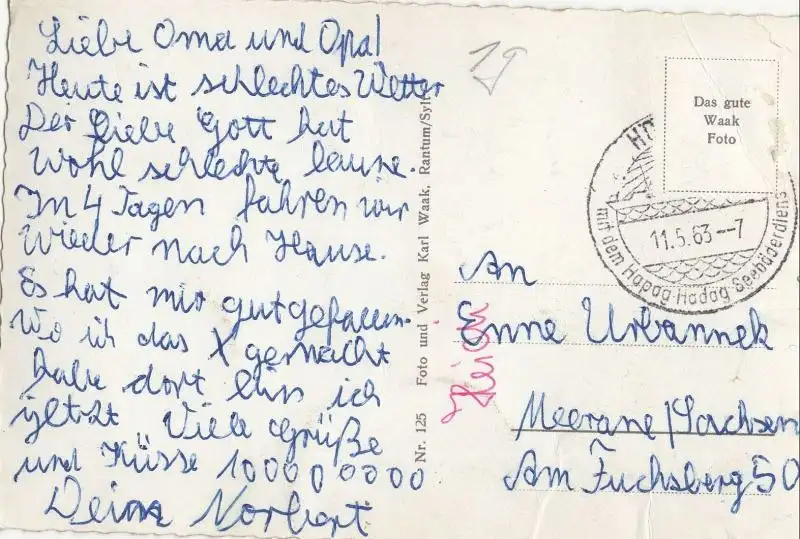 Liebe Oma und Opa!
Heute ist schlechtes Wetter
Der liebe Gott hat
wohl schlechte laune.
In 4 Tagen fahren wir
wieder nach Hause.
Es hat mir gut gefallen.
Wo ich das X gemacht
habe dort bin ich
jetzt Viele Grüße
und Küsse 1000000000
Deine Norbert
Nr. 125 Foto und Verlag Karl Waak, Rantum/Sylt
19
Das gute
Waak
Foto
mit dem Hapag Hadag Seebäderdiens
11.5.63--7
An
Enne Urbannek
Meerane/Sachsen
Am Fuchsberg 50